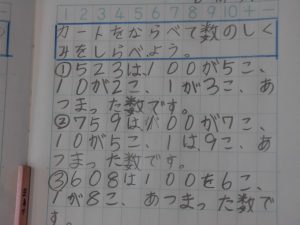 1 2 3 4 5 6 7 8 9 10
カードをならべて数のしく
みをしらべよう。
①523は、100が5こ、
10が2こ、1が3こ、あ
つまった数です。
②759は100が7こ、
10が5こ、1は、9こ、あ
つまった数です。
③608は100を6こ、
1が8こ、あつまった数で
す。